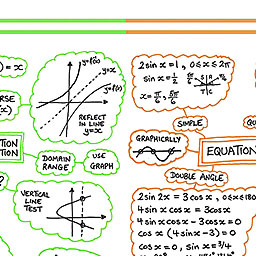 ) = x
y=f(x)
y=x
y=f⁻¹(x)
REFLECT
IN LINE
y=x
RSE
(x)
TION
TION
DOMAIN
RANGE
USE
GRAPH
?
VERTICAL
LINE
TEST
2sin x = 1, 0≤x≤2π
sin x = 1/2
π/6
5π/6
S A
T C
x = π/6, 5π/6
SIMPLE
QU
GRAPHICALLY
EQUATION
DOUBLE ANGLE
2sin 2x = 3cos x, 0≤x≤180
4sin x cos x = 3cos x
4sin x cos x - 3cos x = 0
cos x (4sin x - 3) = 0
cos x = 0, sin x = 3/4